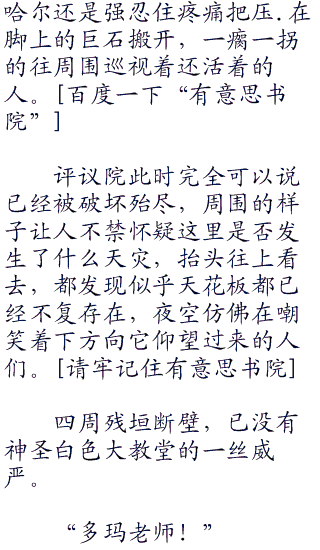 哈尔还是强忍住疼痛把压.在
脚上的巨石搬开，一瘸一拐
的往周围巡视着还活着的
人。[百度一下“有意思书
院”]
评议院此时完全可以说
已经被破坏殆尽，周围的样
子让人不禁怀疑这里是否发
生了什么天灾，抬头往上看
去，都发现似乎天花板都已
经不复存在，夜空仿佛在嘲
笑着下方向它仰望过来的人
们。[请牢记住有意思书院]
四周残垣断壁，已没有
神圣白色大教堂的一丝威
严。
“多玛老师！”